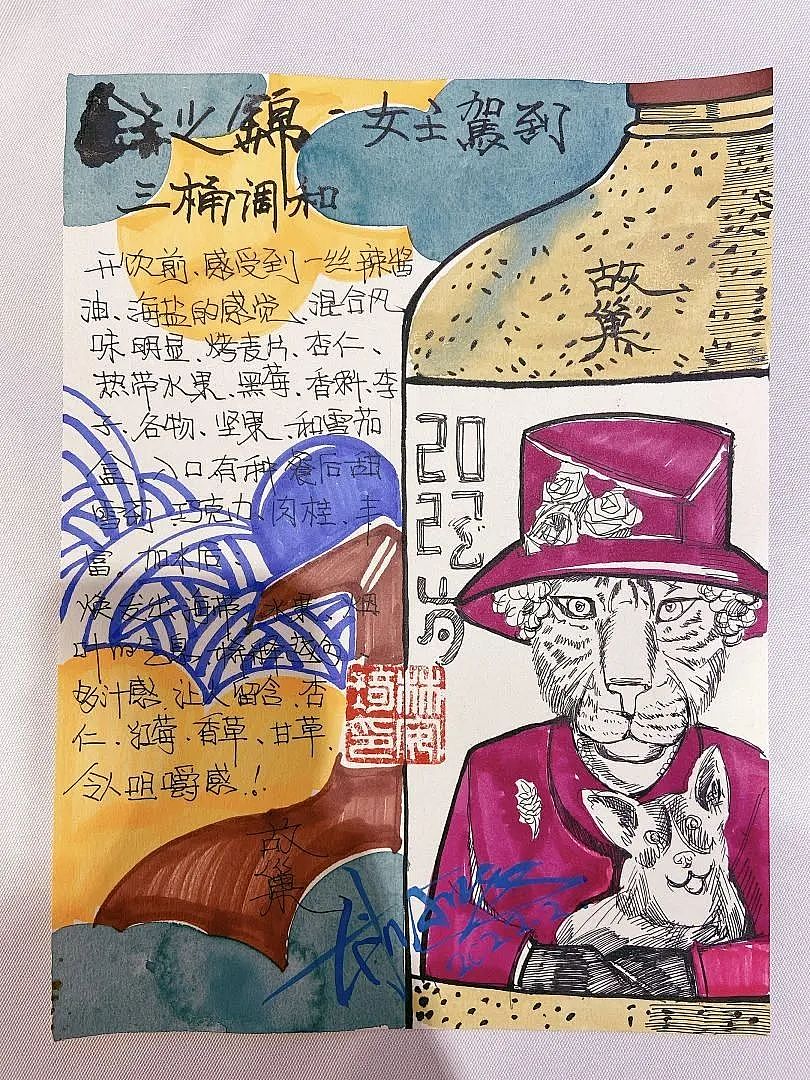 之錦·女王駕到
三桶调和
开饮前、感受到一丝辣酱
油、海盐的感觉、混合风
味明显、烤麦片、杏仁、
热带水果、黑莓、香料、李
子、谷物、坚果、和雪茄
盒、入口有种餐后甜
雪茄、巧克力、肉桂、丰
富、加水后
焕发出海带、水果、烟
叶的气息
奶汁感、让人留念、杏
仁、红莓、香草、甘草、
令人咀嚼感!!
故巢
故
巢
2023
29
2022.2